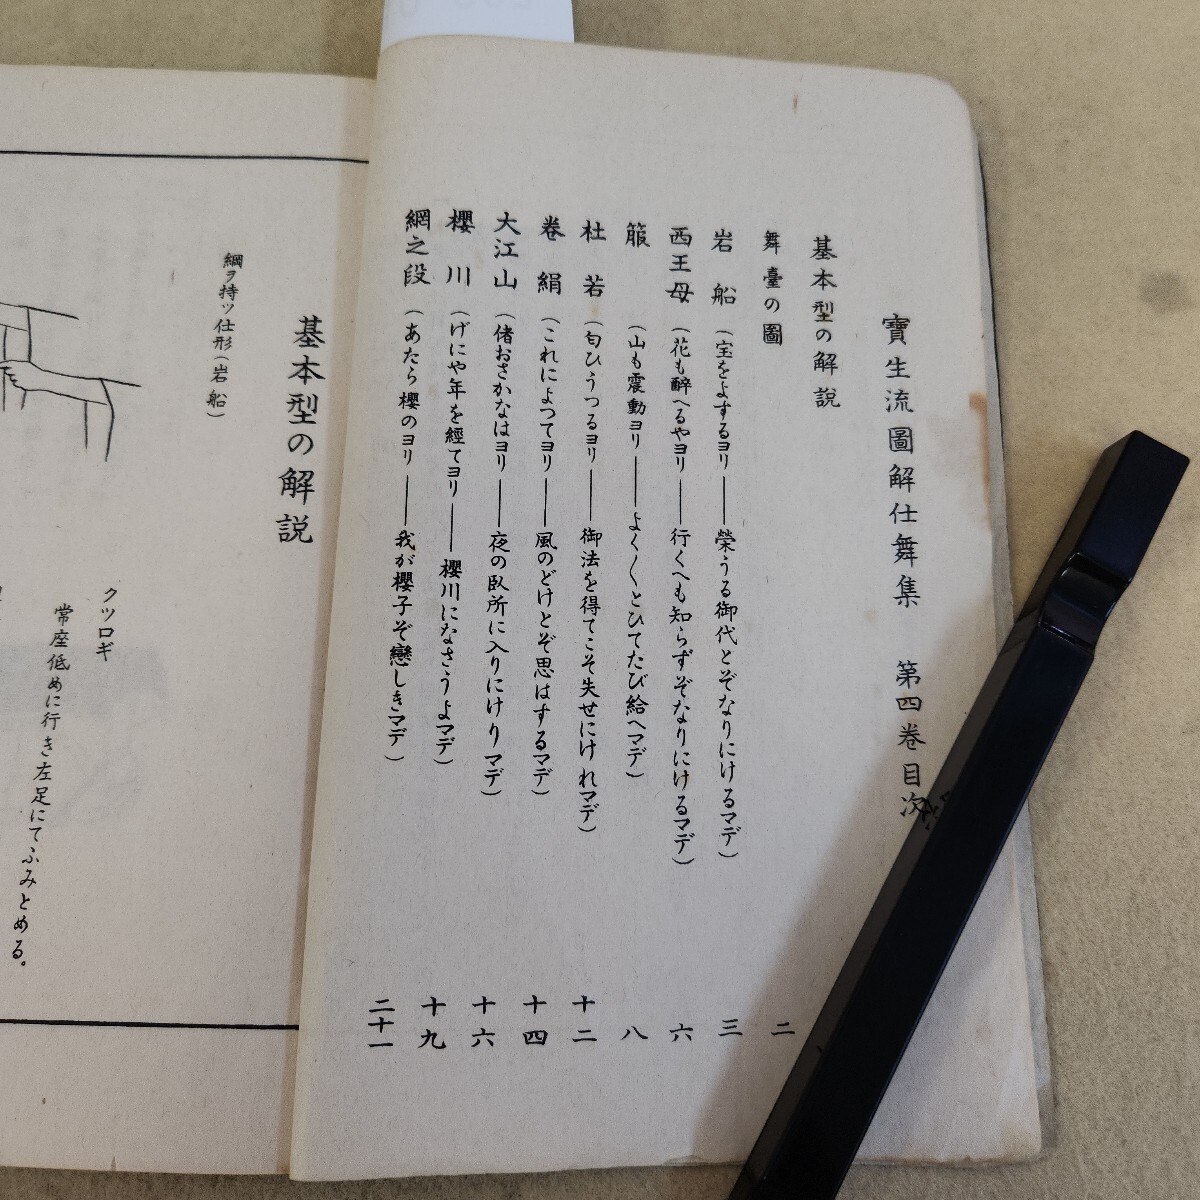 寶生流圖解仕舞集　第四巻目次
基本型の解説
舞臺の圖　二
岩船（宝をよするヨリ——榮うる御代とぞなりにけるマデ）三
西王母（花も醉へるやヨリ——行くへも知らずぞなりにけるマデ）六
箙（山も震動ヨリ——よく〱とひてたび給へマデ）八
杜若（匂ひうつるヨリ——御法を得てこそ失せにけれマデ）十二
巻絹（これによつてヨリ——風のどけとぞ思はするマデ）十四
大江山（偖おさかなはヨリ——夜の臥所に入りにけりマデ）十六
櫻川（げにや年を經てヨリ——櫻川になさうよマデ）十九
網之段（あたら櫻のヨリ——我が櫻子ぞ戀しきマデ）二十一
基本型の解説
綱ヲ持ツ仕形（岩船）
クツロギ
常座低めに行き左足にてふみとめる。